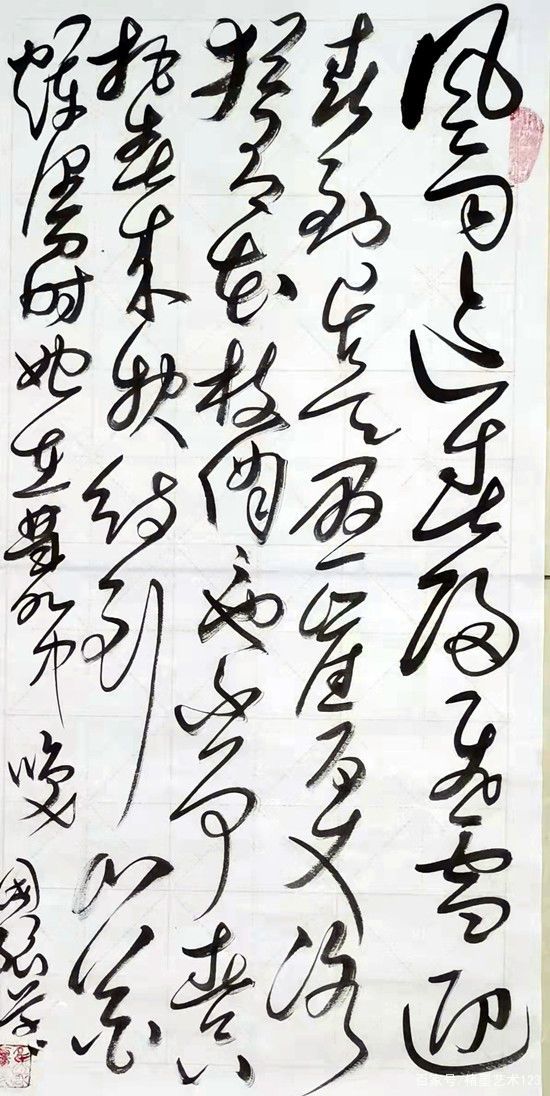 风雨送春归飞雪迎
春到已是悬崖百丈冰
犹有花枝俏俏也不争春
只把春来报待到山花
烂漫时她在丛中笑
百家号/格里艺术123